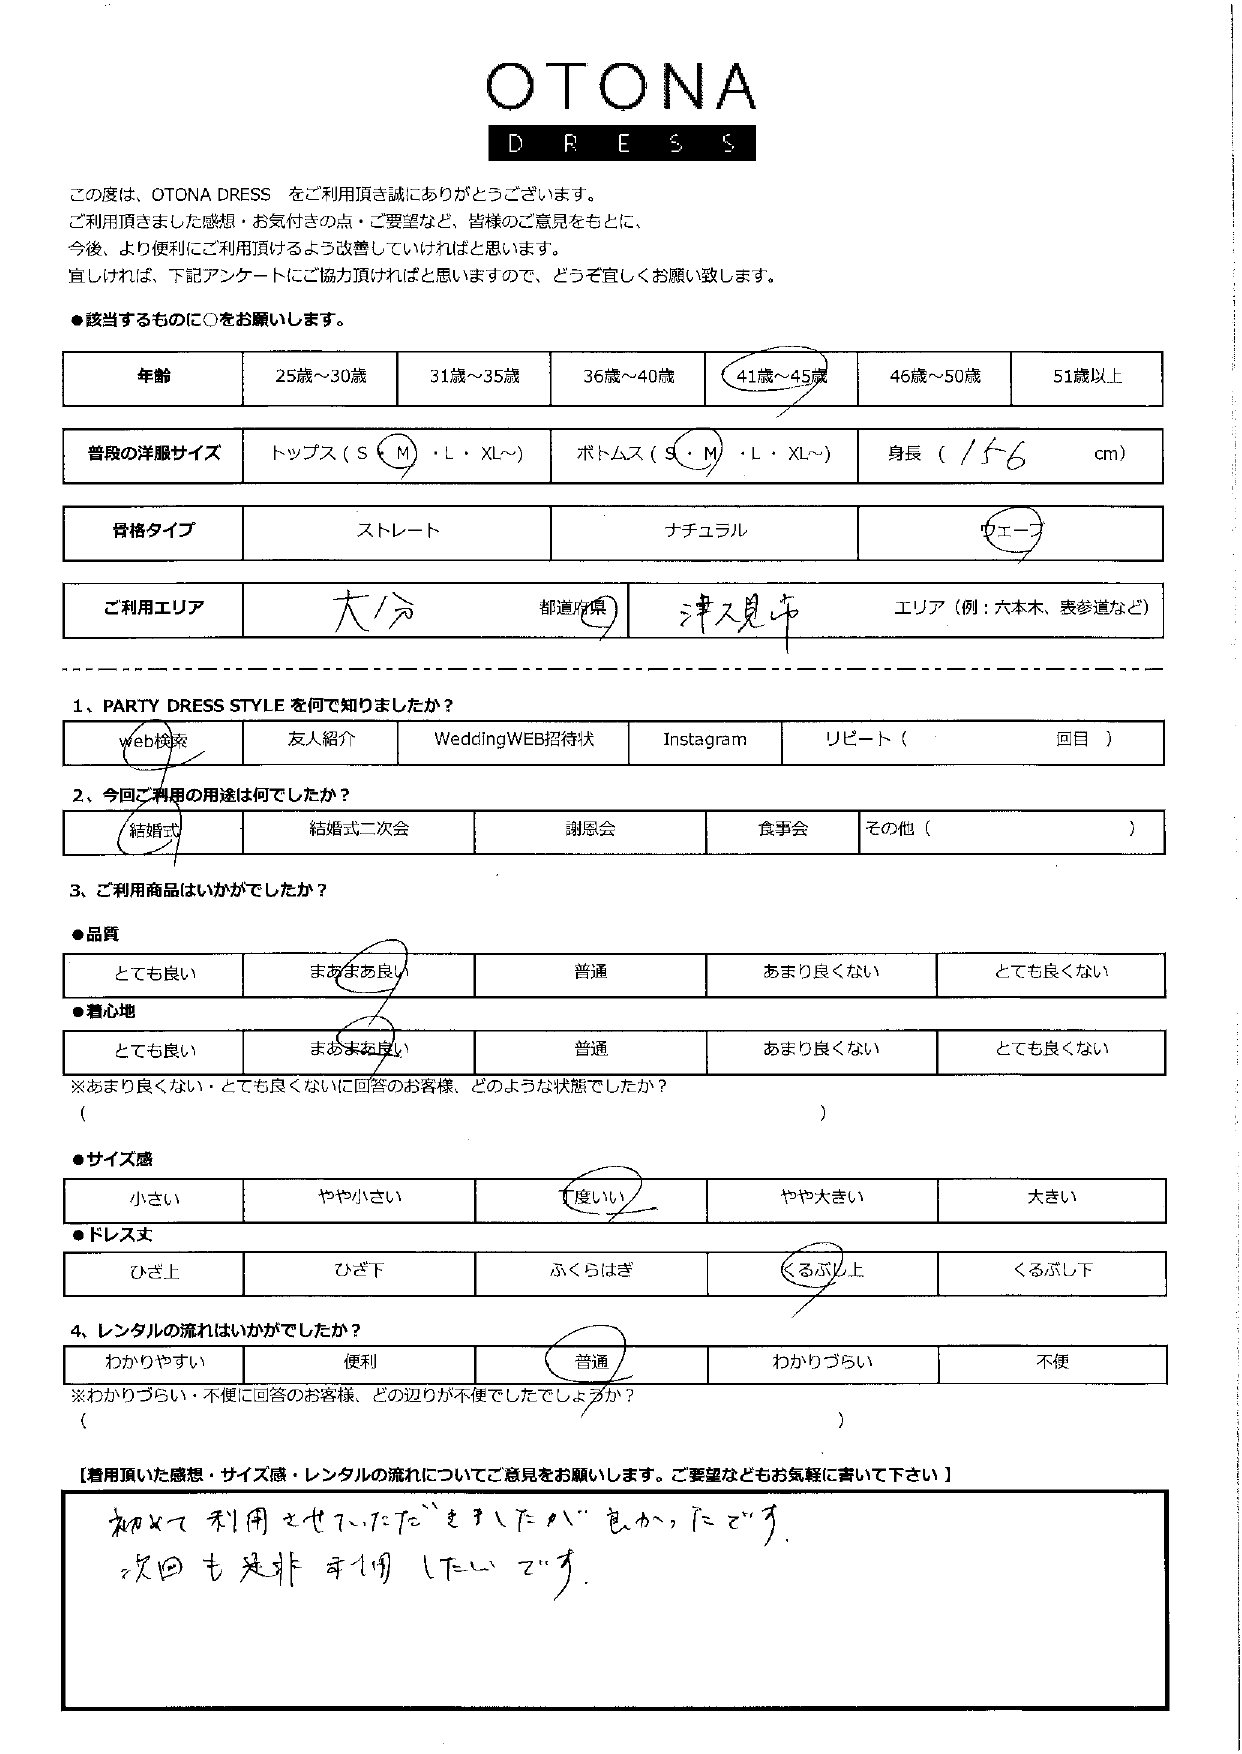 OTONA
DRESS
この度は、OTONA DRESS　をご利用頂き誠にありがとうございます。
ご利用頂きました感想・お気付きの点・ご要望など、皆様のご意見をもとに、
今後、より便利にご利用頂けるよう改善していければと思います。
宜しければ、下記アンケートにご協力頂ければと思いますので、どうぞ宜しくお願い致します。
●該当するものに○をお願いします。
年齢 25歳～30歳 31歳～35歳 36歳～40歳 41歳～45歳 46歳～50歳 51歳以上
普段の洋服サイズ トップス ( S ・ M ・L ・ XL～) ボトムス ( S ・ M ・L ・ XL～) 身長 ( 156 cm)
骨格タイプ ストレート ナチュラル ウェーブ
ご利用エリア 大分 都道府県 津久見市 エリア（例：六本木、表参道など）
1、PARTY DRESS STYLE を何で知りましたか？
web検索 友人紹介 WeddingWEB招待状 Instagram リピート（ 回目 ）
2、今回ご利用の用途は何でしたか？
結婚式 結婚式二次会 謝恩会 食事会 その他（ ）
3、ご利用商品はいかがでしたか？
●品質
とても良い まあまあ良い 普通 あまり良くない とても良くない
●着心地
とても良い まあまあ良い 普通 あまり良くない とても良くない
※あまり良くない・とても良くないに回答のお客様、どのような状態でしたか？
（ ）
●サイズ感
小さい やや小さい 丁度いい やや大きい 大きい
●ドレス丈
ひざ上 ひざ下 ふくらはぎ くるぶし上 くるぶし下
4、レンタルの流れはいかがでしたか？
わかりやすい 便利 普通 わかりづらい 不便
※わかりづらい・不便に回答のお客様、どの辺りが不便でしたでしょうか？
（ ）
【着用頂いた感想・サイズ感・レンタルの流れについてご意見をお願いします。ご要望などもお気軽に書いて下さい 】
初めて利用させていただきましたが良かったです.
次回も是非利用したいです.